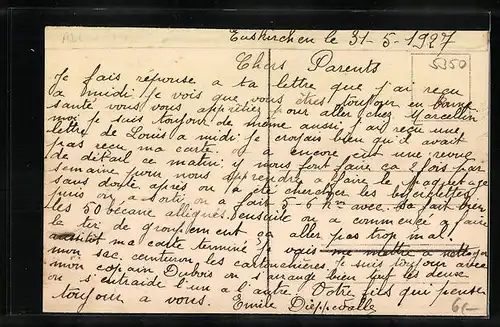 Euskirchen le 31-5-1927
5350
Chers Parents
Je fais réponse a ta lettre que j'ai reçu
a midi je vois que vous êtes toujour en bonne
santé vous vous apprêtiez pour aller chez Marcellin
moi je suis toujour de même aussi j'ai reçu une
lettre de Louis a midi je croyais bien qu'il avait
pas reçu ma carte. il y a encore eut une revue
de détail ce matin, y nous font faire ça 2 fois par
semaine pour nous apprendre a faire le
sans doute après on a été chercher les bicyclettes
puis on a sorti on a fait 5-6 Km avec. sa fait bien
les 50 bécane allignés. ensuite on a commencé a faire
le tir de groupement ça aller pas trop mal.
ma carte terminé je vais me mettre a nettoyer
mon sac. ceinturon, les cartouchières je suis toujour avec
mon copain Dubois on s'arrange bien tout les deux
on s'entraide l'une a l'autre Votre fils qui pense
toujour a vous. Emile Dieppedalle
6.-